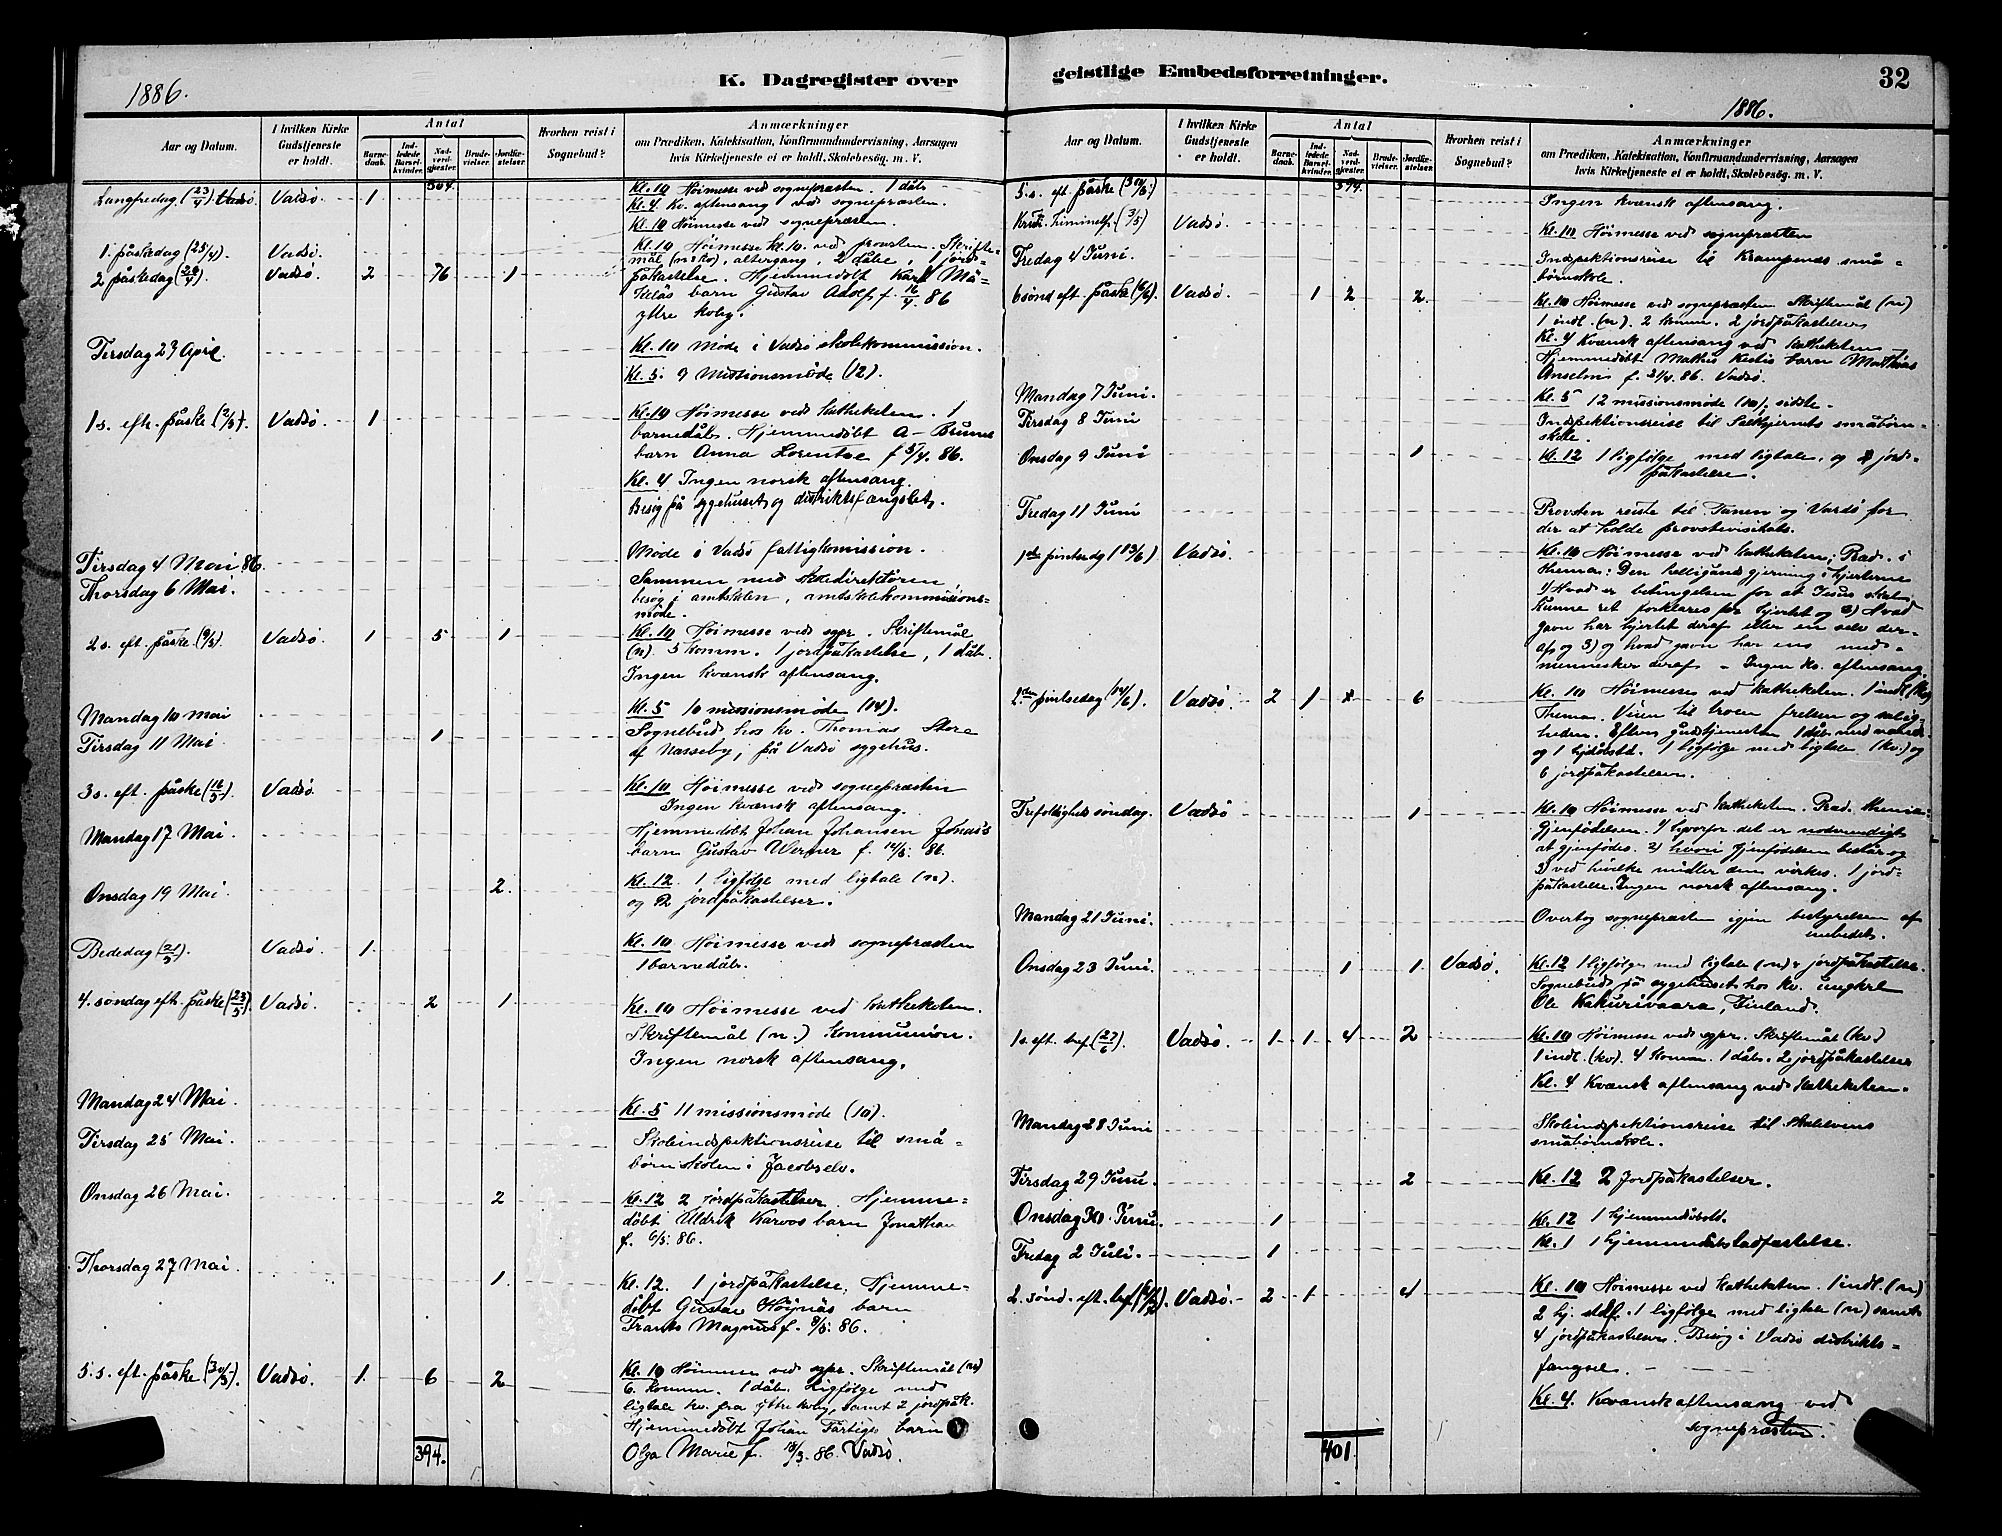 1886.
K. Dagregister over
Aar og Datum.
I hvilken Kirke Gudstjeneste er holdt.
Antal
Barnedaab.
Indledede Barselkvinder.
Nadverdgjester.
Brudevielser.
Jordfæstelser.
Hvorhen reist i Sognebud?
Anmærkninger
om Prædiken, Katekisation, Konfirmandundervisning, Aarsagen
hvis Kirketjeneste ei er holdt, Skolebesøg. m. V.
Langfredag (23/4) Vadsø. 1
Kl. 10 Høimesse ved sognepræsten. 1 dåb
Kl. 4 Kv. aftensang ved sognepræsten.
1. påskedag (25/4) Vadsø.
Kl. 10 Høimesse ved sognepræsten.
2 påskedag (26/4) Vadsø 2 76 1
Kl. 10 Høimesse kl. 10. ved provsten. Skrifte-
mål, altergang, 2 dåbe, 1 jord-
påkastelse. Hjemmedøbt Karl
barn Gustav Adolf f. 16/4. 86
ytre
Tirsdag 27 April.
Kl. 10 Møde i Vadsø skolekommission.
Kl. 5. 9 Missionsmøde (12).
1 s. eft. påske (2/5). Vadsø. 1
Kl. 10 Høimesse ved katheketen. 1
barnedåb. Hjemmedøbt A
barn Anna
Kl. 4 Ingen norsk aftensang.
Besøg på sygehuset og distriktsfængslet.
Tirsdag 4 Mai 86.
Møde i Vadsø fattigkomission.
Thorsdag 6 Mai.
Sammen med skoledirektøren
besøg i amtskolen, amtskolekommissions-
møde.
2 s. eft. påske (9/5) Vadsø 1 5 1
Kl. 10 Høimesse ved sgpr. Skriftemål
(n) 5 komm. 1 jordpåkastelse, 1 dåb.
Ingen kvænsk aftensang.
Mandag 10 mai
Kl. 5 10 missionsmøde (14).
Tirsdag 11 Mai 1
Sognebud hos kv. Thomas Store
af Nasseby, på Vadsø sygehus.
3 s. eft. påske (16/5). Vadsø.
Kl. 10 Høimesse ved sognepræsten
Ingen kvænsk aftensang.
Mandag 17 Mai.
Hjemmedøbt Johan Johansen
barn Gustav Werner f. 12/5. 86.
Onsdag 19 Mai 2.
Kl. 12. 1 ligfølge med ligtale (n).
og 2 jordpåkastelser.
Bededag (21/5). Vadsø 1.
Kl. 10 Høimesse ved sognepræsten
1 barnedåb.
4. søndag eft. påske (23/5). Vadsø. 2 1
Kl. 10 Høimesse ved katheketen.
Skriftemål (n.) Kommunion.
Ingen norsk aftensang.
Mandag 24 Mai.
Kl. 5 11 missionsmøde (10).
Tirsdag 25 Mai.
Skoleindspektionsreise til små-
børnskolen i Jacobselv.
Onsdag 26 Mai. 2
Kl. 12 2 jordpåkastelser. Hjemme-
døbt Uldrik Karvos barn Jonathan
f. 6/5. 86.
Thorsdag 27 Mai 1.
Kl. 12. 1 jordpåkastelse, Hjemme-
døbt Gustav barn
Frants Magnus f. 8/5. 86.
5. s. eft. påske (30/5). Vadsø. 1. 6 2
Kl. 10 Høimesse ved sgpr. Skriftemål
6. komm. 1 dåb. Ligfølge med
ligtale kv. fra samt 2 jordpåk.
Hjemmedøbt Johan barn
Olga Marie f. 18/3. 86. Vadsø.
394.
geistlige Embedsforretninger.
32
1886.
Aar og Datum.
I hvilken Kirke Gudstjeneste er holdt.
Antal
Barnedaab.
Indledede Barselkvinder.
Nadverdgjester.
Brudevielser.
Jordfæstelser.
Hvorhen reist i Sognebud?
Anmærkninger
om Prædiken, Katekisation, Konfirmandundervisning, Aarsagen
hvis Kirketjeneste ei er holdt, Skolebesøg. m. V.
5. s. eft. påske (30/5.) 394.
Ingen kvænsk aftensang.
Krist. himmelf. Vadsø.
Kl. 10 Høimesse ved sognepræsten
Fredag 4 Juni.
Indspektionsreise til Krampenes små-
børnskole.
6 sønd eft. påske (6/6). Vadsø. 1 2 2.
Kl. 10 Høimesse ved sognepræsten Skriftemål (n)
1 indl. (n). 2 komm. 2 jordpåkastelser
Kl. 4 Kvænsk aftensang ved katheketen
Hjemmedøbt Mathis barn Mathias
Vadsø.
Mandag 7 Juni.
Kl. 5 12 missionsmøde (10). sidste.
Tirsdag 8 Juni
Indspektionsreise til småbørn-
skole.
Onsdag 9 Juni 1
Kl. 12 1 ligfølge med ligtale, og jord-
påkastelse.
Fredag 11 Juni
Provsten reiste til Tanen og Vardø for
der at holde provstevisitats.
1ste pintsedg (13/6) Vadsø.
Kl. 10 Høimesse ved katheketen; Præd. i
thema: Den helligånds gjerning i hjerterne
1) Hvad er betingelsen for at Jesus skal
kunne ret forklares for hjertet og 2) Hvad
gavn har hjertet deraf eller en selv der-
af og 3) og hvad gavn har ens med-
mennesker deraf – Ingen kv. aftensang.
2den pintsedag (14/6). Vadsø. 2 1 6
Kl. 10 Høimesse ved katheketen. 1 indl
thema. Veien til troen frelsen og salig-
heden. Efter gudstjenesten 1 dåb
og 1 1 ligfølge med ligtale (kv.) og
6 jordpåkastelser.
Trefoldigheds søndag. Vadsø 1
Kl. 10 Høimesse ved katheketen. Præd. thema
Gjenfødelsen. 1) hvorfor det er nødvendigt
at gjenfødes. 2) hvori gjenfødelsen består og
3) ved hvilke midler den virkes. 1 jord-
påkastelse. Ingen norsk aftensang.
Mandag 21 Juni.
Overtog sognepræsten igjen bestyrelsen af
embedet.
Onsdag 23 Juni. 1 1 Vadsø.
Kl. 12 1 ligfølge med ligtale (n) jordpåkastelse.
Sognebud på sygehuset hos kv. ungkrl
Ole Finland.
1 s. eft. tref. (27/6). Vadsø. 1 1 4 2
Kl. 10 Høimesse ved sgpr. Skriftemål (kv)
1 indl. (kv). 4 komm. 1 dåb. 2 jordpåkastelser
Kl. 4 Kvænsk aftensang ved katheketen.
Mandag 28 Juni
Skoleindspektionsreise til
småbørnskole.
Tirsdag 29 Juni. 2
Kl. 12 2 Jordpåkastelser.
Onsdag 30 Juni. 1
Kl. 12 1 hjemmedøbt.
Fredag 2 Juli. 1
Kl. 1 1 hjemmedåbstadfæstelse.
2. sønd. eft. tref. Vadsø. 2 1 4
Kl. 10 Høimesse ved katheketen. 1 indl. (n)
2 hj. 1 ligfølge med ligtale (n) samt
4 jordpåkastelser. Besøg i Vadsø distrikts-
fængsel.
Kl. 4. Kvænsk aftensang ved
sognepræsten.
401.